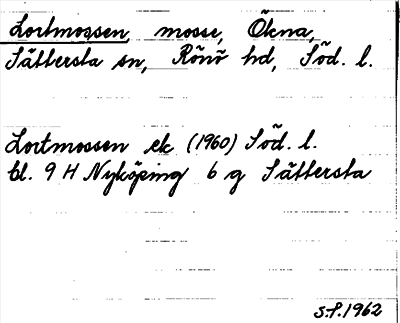 Lortmossen, mosse, Ökna,
Sättersta sn, Rönö hd, Söd. l.
Lortmossen ek (1960) Söd. l.
bl. 9 H Nyköping 6 g Sättersta
s.f. 1962